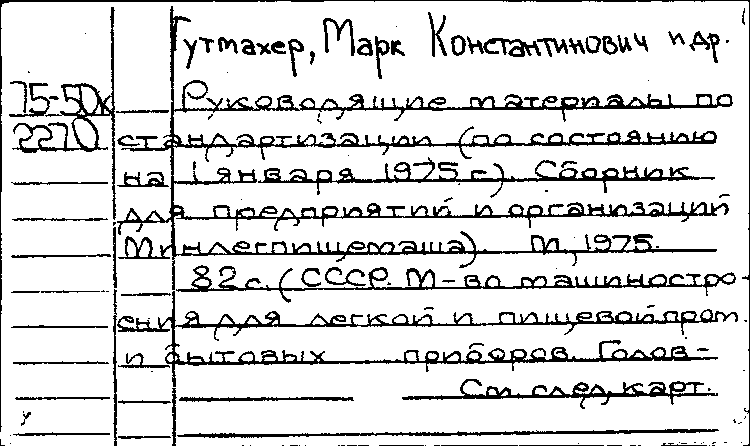 Гутмахер, Марк Константинович и др.
75-50к Руководящие материалы по
2270 стандартизации (по состоянию
на 1 января 1975 г.). Сборник
для предприятий и организаций
Минлегпищемаша). М., 1975.
82 с. (СССР. М-во машиностро-
ения для легкой и пищевой пром.
и бытовых приборов. Голов-
См. след. карт.